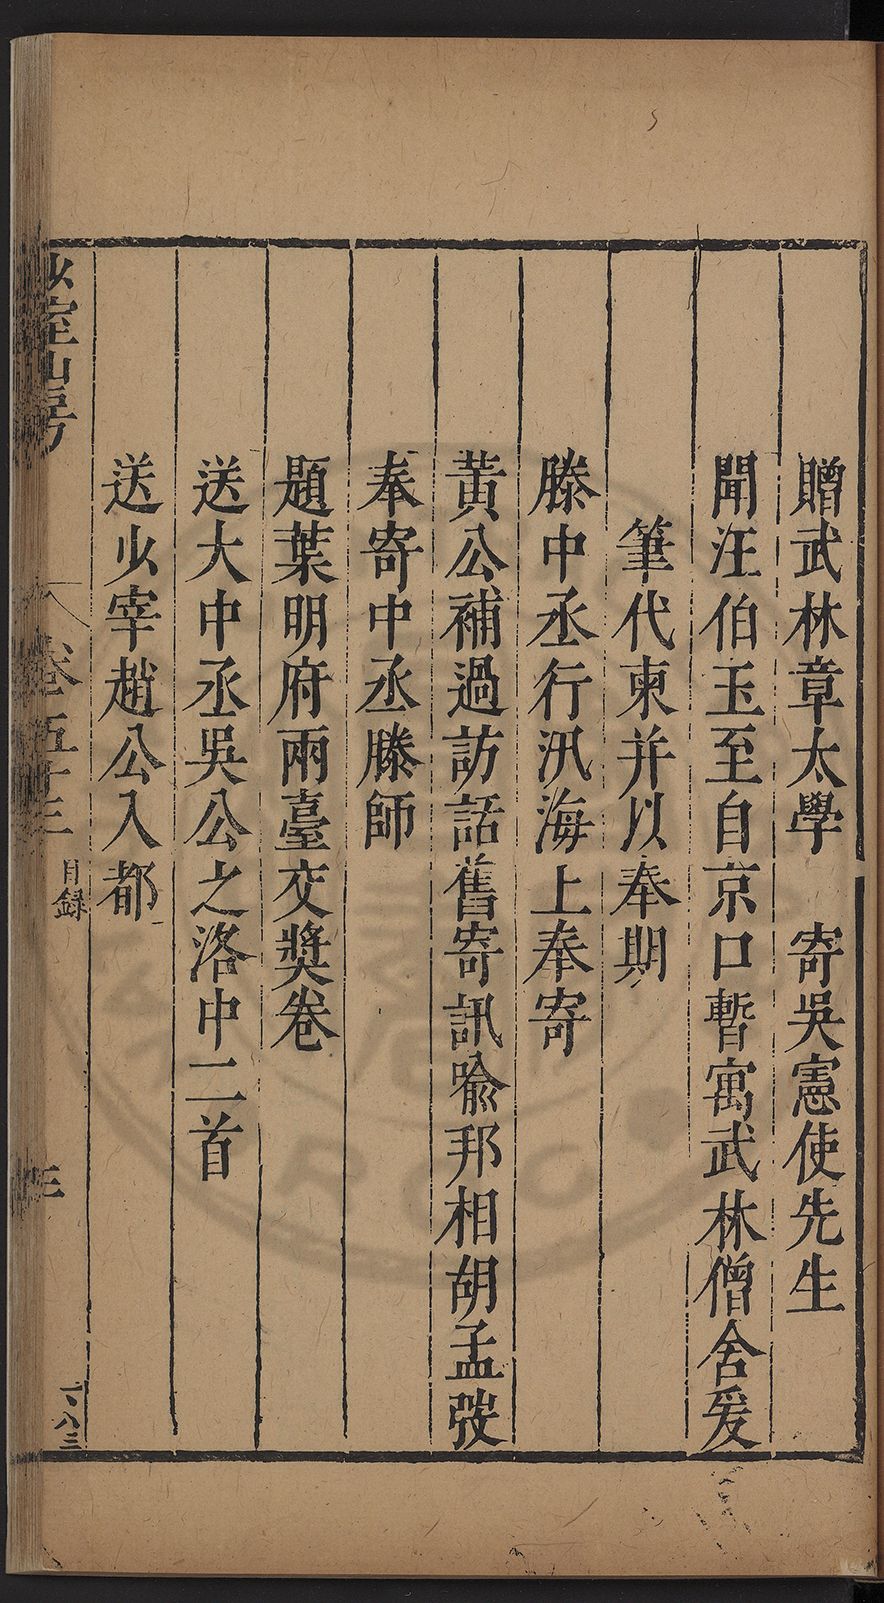 贈武林章太學　寄吳憲使先生
聞汪伯玉至自京口暫寓武林僧舍爰
筆代柬并以奉期
滕中丞行汛海上奉寄
黃公補過訪話舊寄訊喻邦相胡孟弢
奉寄中丞滕師
題葉明府兩臺交獎卷
送大中丞吳公之洛中二首
送少宰趙公入都
少室山房
卷五十三
目錄
三